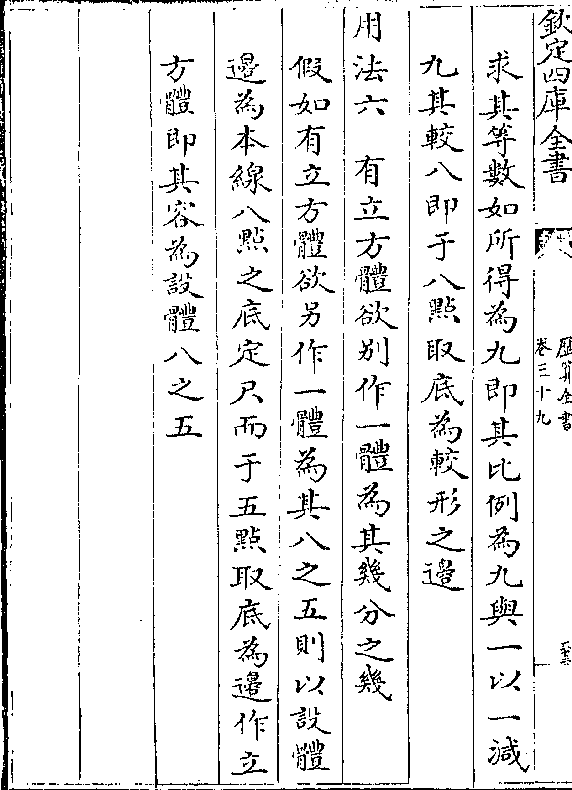 欽定四庫全書
歷算全書
卷三十九
求其等數如所得為九即其比例為九與一以一減
九其較八即于八點取底為較形之邉
用法六　有立方體欲别作一體為其幾分之幾
假如有立方體欲另作一體為其八之五則以設體
邉為本線八點之底定尺而于五點取底為邉作立
方體即其容為設體八之五